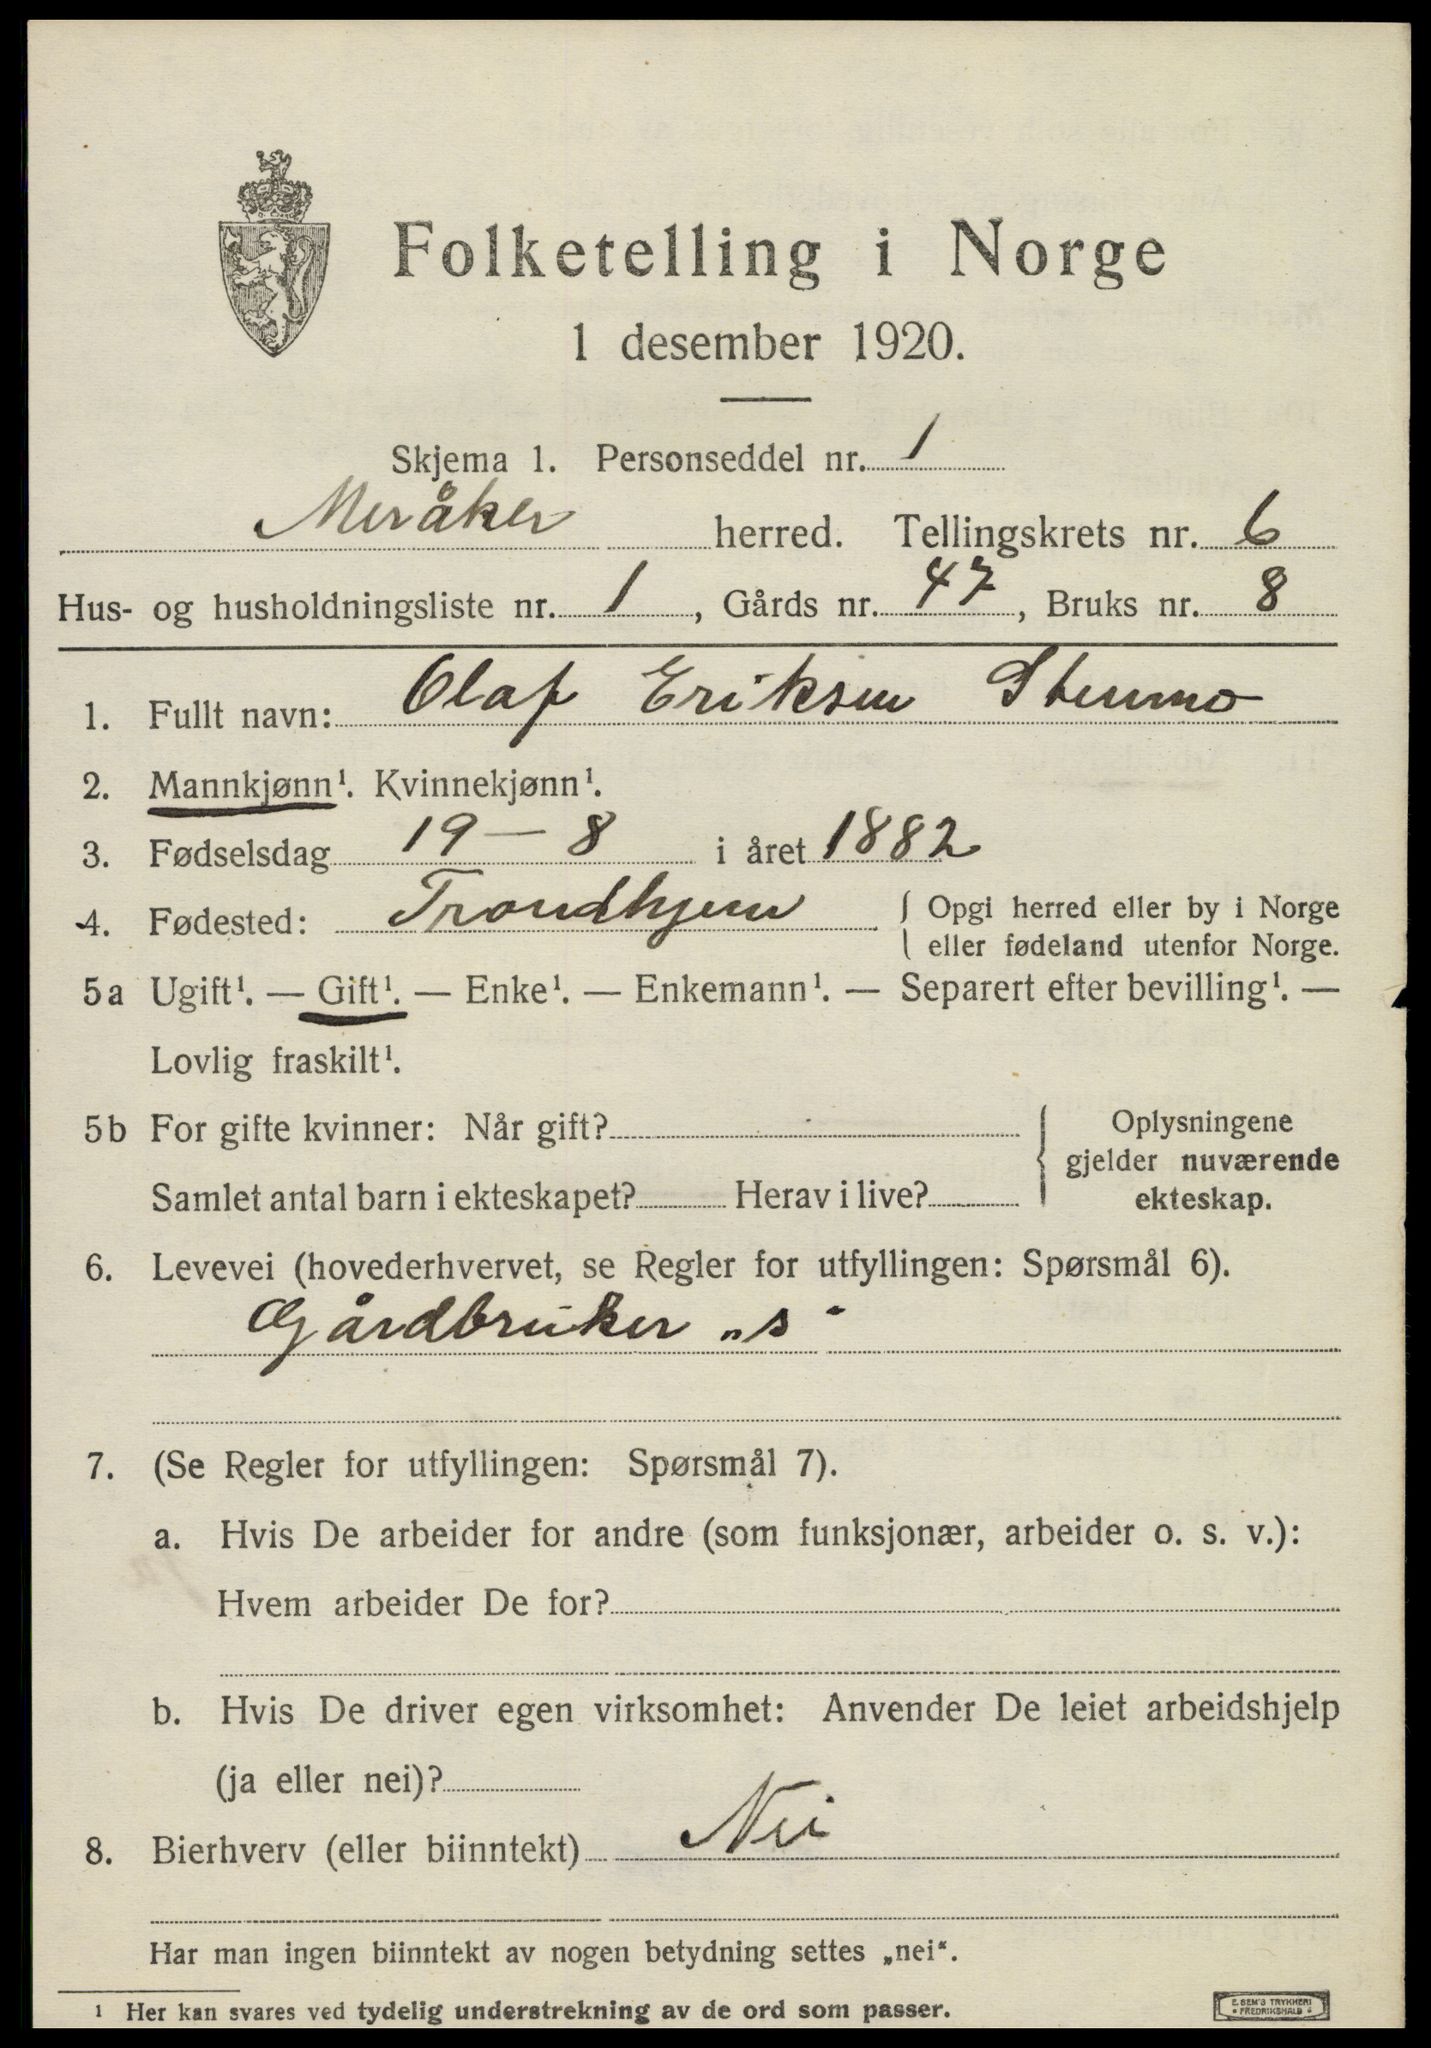 Folketelling i Norge
1 desember 1920.
Skjema 1. Personseddel nr. 1
Meråker herred. Tellingskrets nr. 6
Hus- og husholdningsliste nr. 1, Gårds nr. 47, Bruks nr. 8
1. Fullt navn: Olaf Eriksen Stenmo
2. Mannkjønn¹. Kvinnekjønn¹.
3. Fødselsdag 19 – 8 i året 1882
4. Fødested: Trondhjem { Opgi herred eller by i Norge
eller fødeland utenfor Norge.
5a Ugift¹. — Gift¹. — Enke¹. — Enkemann¹. — Separert efter bevilling¹. —
Lovlig fraskilt¹.
5b For gifte kvinner: Når gift?
Samlet antal barn i ekteskapet? Herav i live?
{ Oplysningene
gjelder nuværende
ekteskap.
6. Levevei (hovederhvervet, se Regler for utfyllingen: Spørsmål 6).
Gårdbruker „s“
7. (Se Regler for utfyllingen: Spørsmål 7).
a. Hvis De arbeider for andre (som funksjonær, arbeider o. s. v.):
Hvem arbeider De for?
b. Hvis De driver egen virksomhet: Anvender De leiet arbeidshjelp
(ja eller nei)?
8. Bierhverv (eller biinntekt) Nei
Har man ingen biinntekt av nogen betydning settes „nei“.
¹ Her kan svares ved tydelig understrekning av de ord som passer.
E. SEM'S TRYKKERI
FREDRIKSHALD